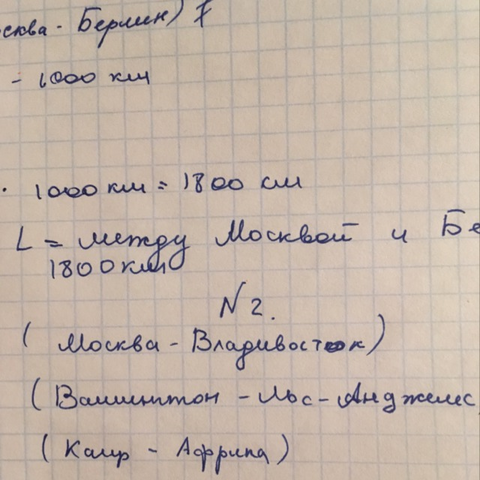 сква - Берлин)
- 1000 км
. 1000 км = 1800 см
L = между Москвой и Бе
1800 км
N 2.
( Москва - Владивосток)
( Вашинтон - Лос - Анджелес
( Каир - Африка)